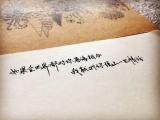 如果全世界都对你恶语相加
我就对你说上一世情话